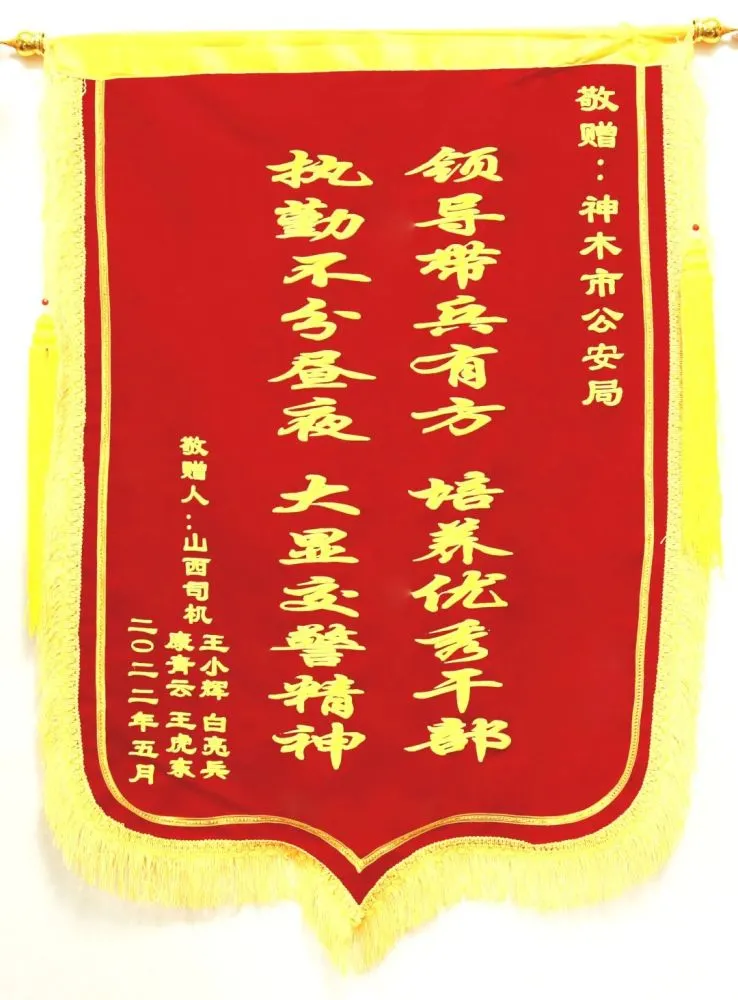 敬赠：神木市公安局
领导带兵有方 培养优秀干部
执勤不分昼夜 大显交警精神
敬赠人：山西司机
王小辉 白亮兵
康青云 王虎东
二〇二二年五月